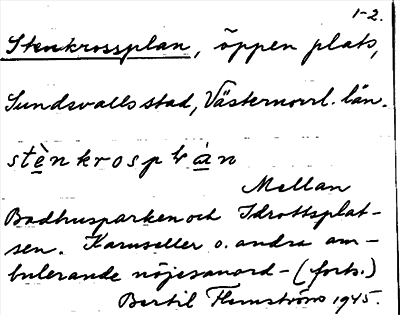 1-2.
Stenkrossplan, öppen plats,
Sundsvalls stad, Västernorrl. län.
stènkrosplán
Mellan
Badhusparken och Idrottsplat-
sen. Karuseller o. andra am-
bulerande nöjesanord- (forts.)
Bertil Flemström 1945.